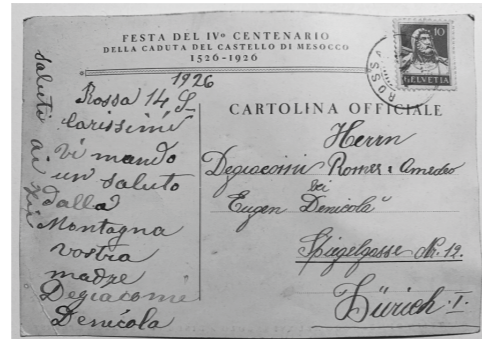 FESTA DEL IVº CENTENARIO
DELLA CADUTA DEL CASTELLO DI MESOCCO
1526-1926
10
HELVETIA
ROSSA
CARTOLINA OFFICIALE
1926
Rossa 14 S
Carissimi
vi mando
un saluto
dalla
Montagna
vostra
madre
Degiacomi
Denicola
saluti
ai
Herrn
Degiacomi Romeo & Amedeo
bei
Eugen Denicola
Spiegelgasse Nr. 12.
Zürich I.